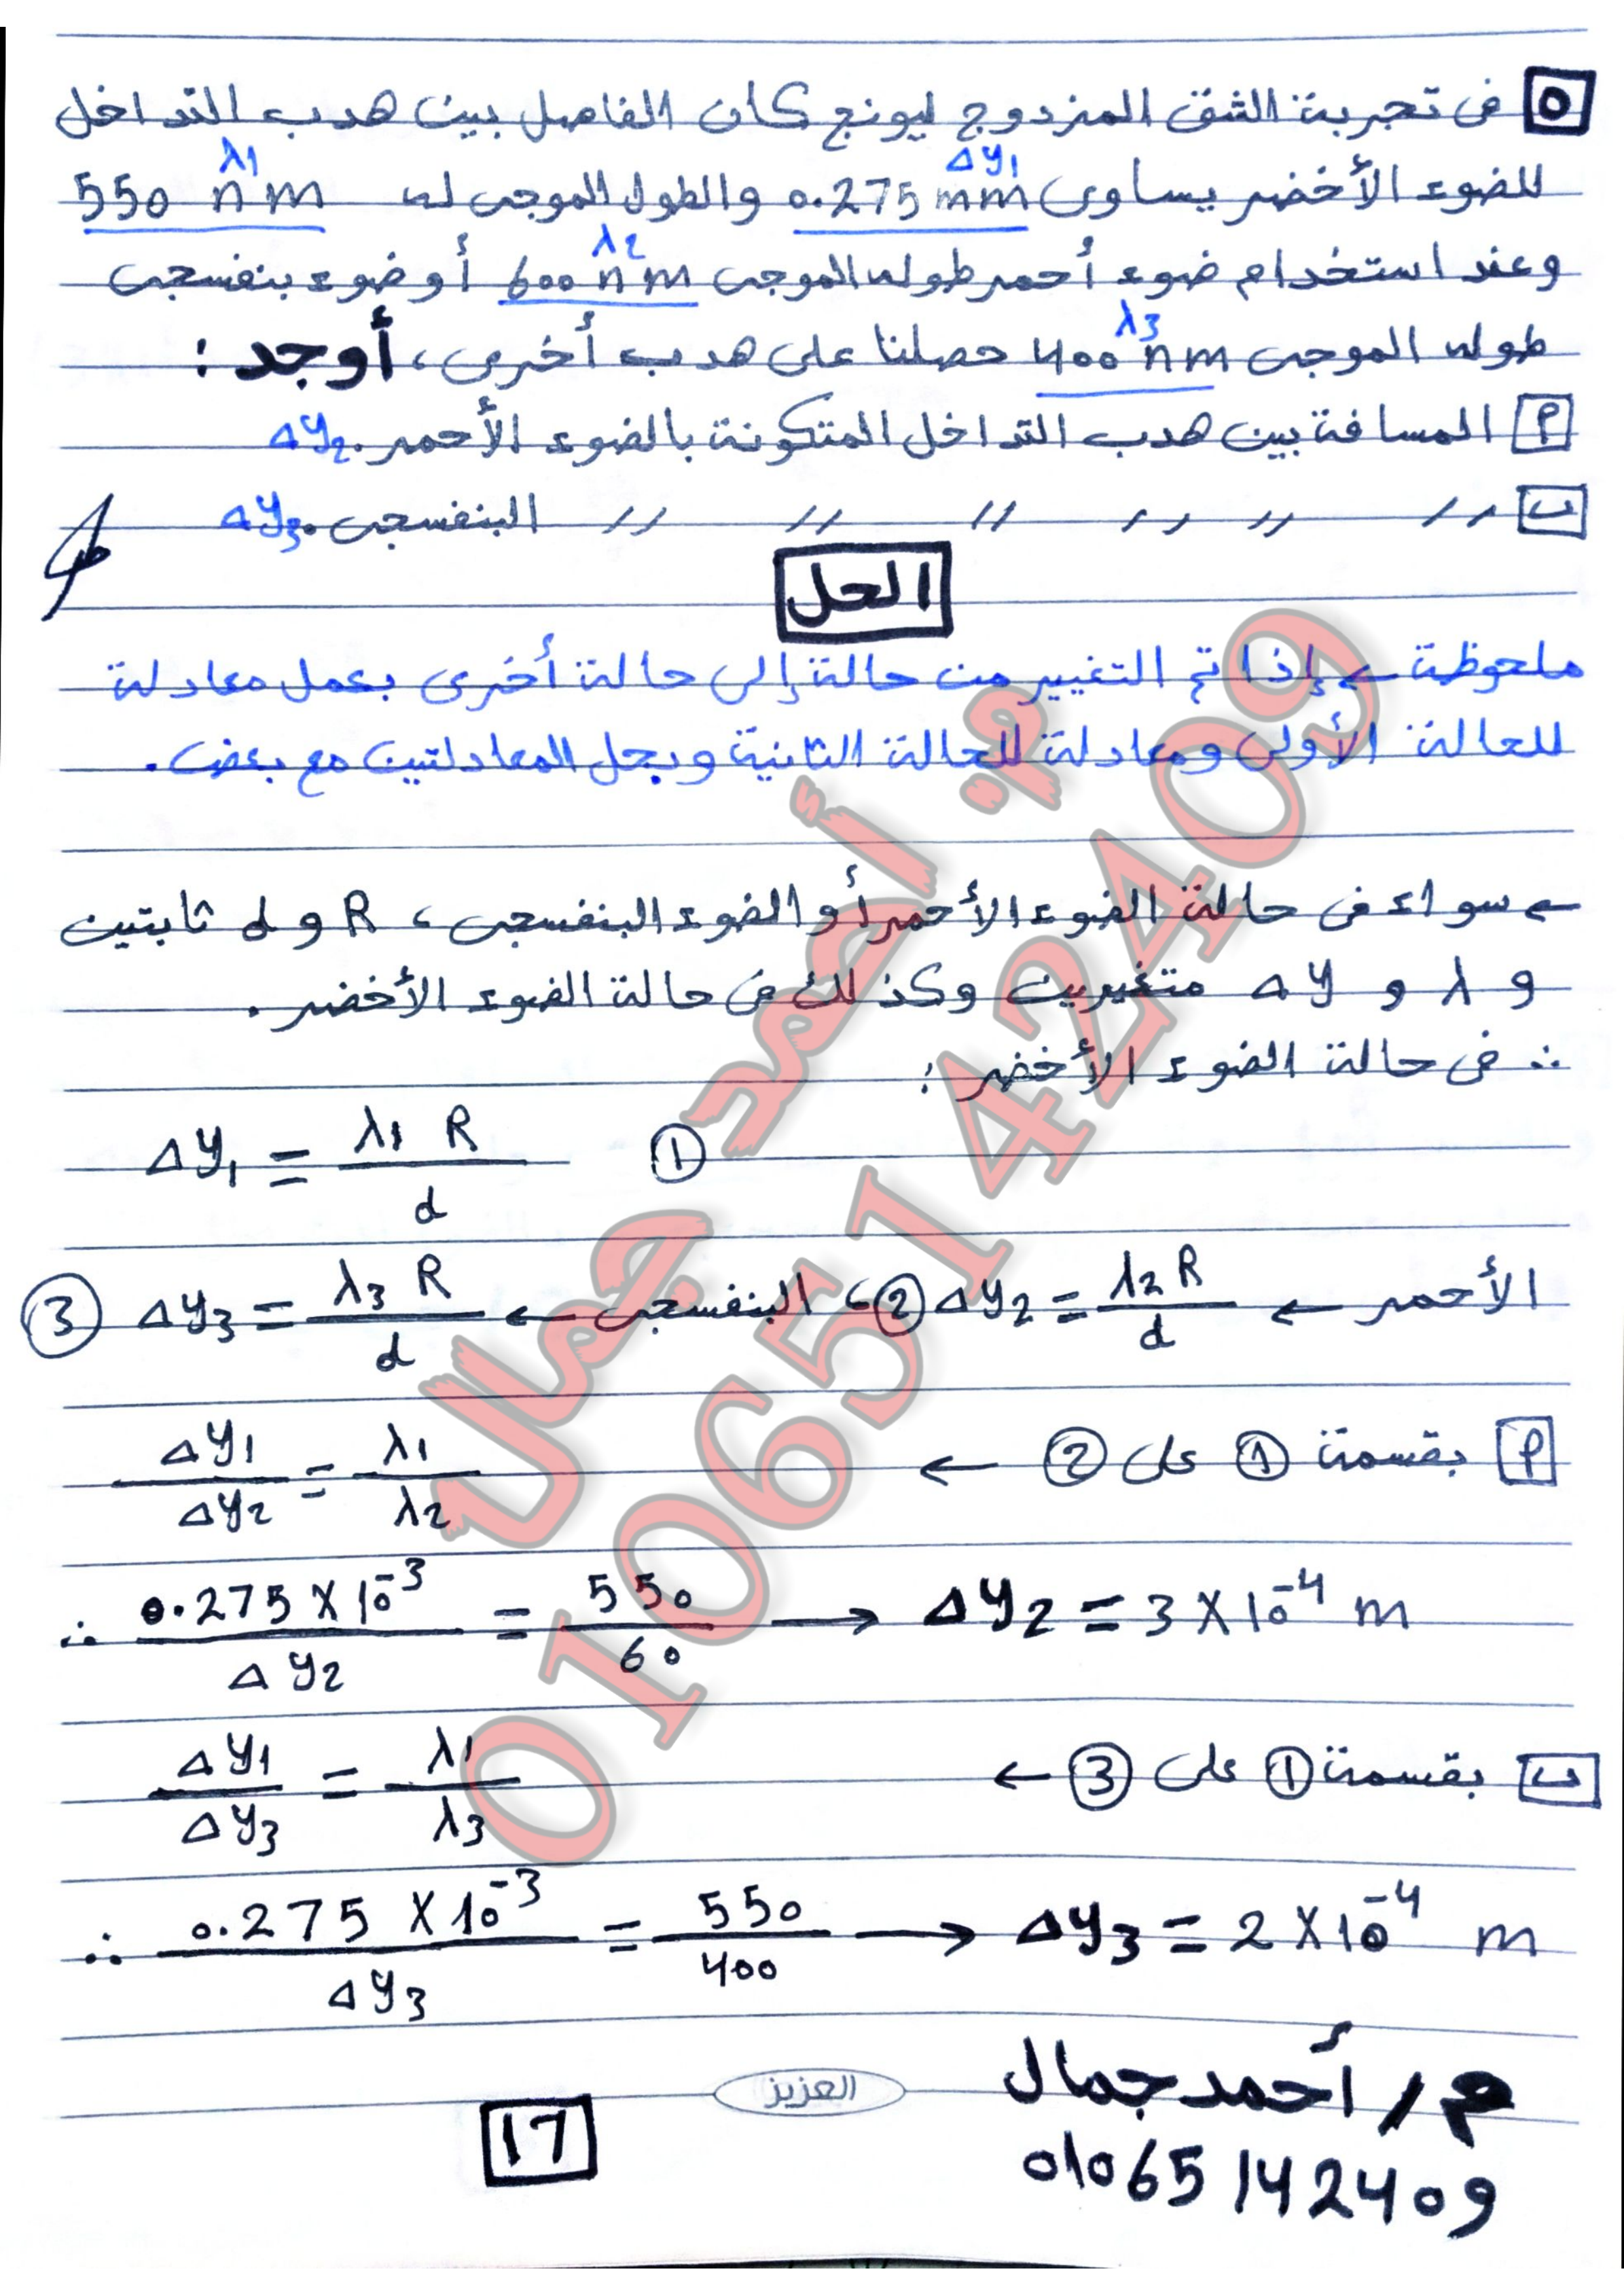 ٥ فى تجربة الشق المزدوج ليونج كان الفاصل بين هدب التداخل
Δy1 λ1
للضوء الأخضر يساوى 0.275 mm والطول الموجى له 550 nm
λ2
وعند استخدام ضوء أحمر طوله الموجى 600 nm أو ضوء بنفسجى
λ3
طوله الموجى 400 nm حصلنا على هدب أخرى، أوجد :
أ المسافة بين هدب التداخل المتكونة بالضوء الأحمر. Δy2
ب // // // // // // البنفسجى. Δy3
الحل
ملحوظة ← إذا تم التغيير من حالة إلى حالة أخرى بعمل معادلة
للحالة الأولى ومعادلة للحالة الثانية وبحل المعادلتين مع بعض.
← سواء فى حالة الضوء الأحمر أو الضوء البنفسجى، R و d ثابتين
و λ و Δy متغيرين وكذلك فى حالة الضوء الأخضر.
∴ فى حالة الضوء الأخضر :
Δy1 = λ1 R / d ①
الأحمر ← Δy2 = λ2 R / d ② ، البنفسجى ← Δy3 = λ3 R / d ③
أ بقسمة ① على ② ← Δy1 / Δy2 = λ1 / λ2
∴ 0.275 X 10^-3 / Δy2 = 550 / 60 → Δy2 = 3 X 10^-4 m
ب بقسمة ① على ③ ← Δy1 / Δy3 = λ1 / λ3
∴ 0.275 X 10^-3 / Δy3 = 550 / 400 → Δy3 = 2 X 10^-4 m
م/ أحمد جمال
01065142409
العزيز
17
م: أحمد جمال
01065142409